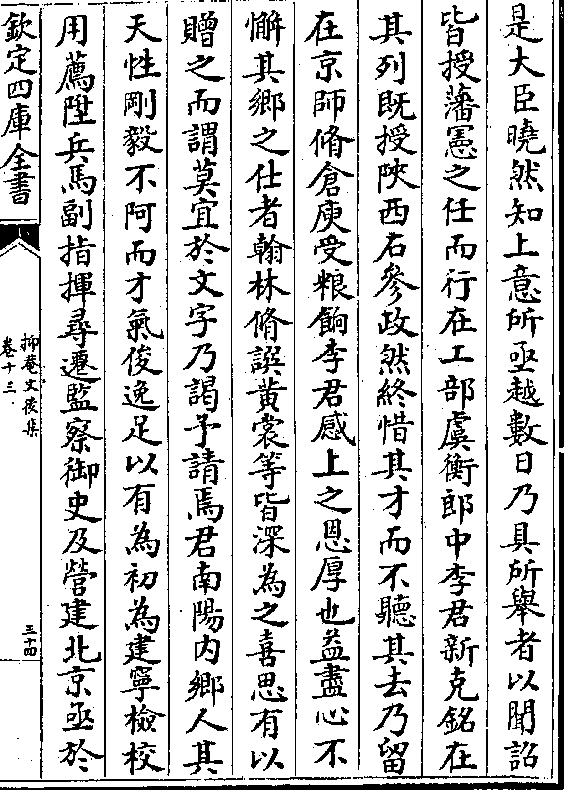 是大臣曉然知上意所亟越數日乃具所舉者以聞詔
皆授藩憲之任而行在工部虞衡郎中李君新克銘在
其列既授陜西右參政然終惜其才而不聽其去乃留
在京師脩倉庾受粮餉李君感上之恩厚也益盡心不
懈其鄉之仕者翰林脩譔黄裳等皆深為之喜思有以
贈之而謂莫宜於文字乃謁予請焉君南陽内鄉人其
天性剛毅不阿而才氣俊逸足以有為初為建寧檢校
用薦陞兵馬副指揮尋遷監察御史及營建北京亟於
欽定四庫全書
抑菴文後集
卷十三
三十四